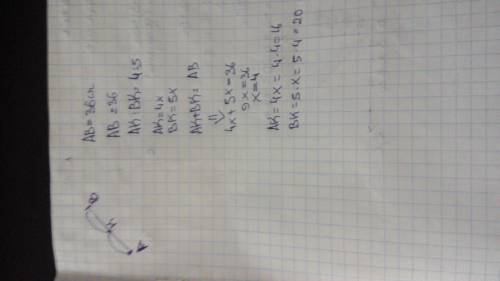 AB = 36см
AB = 36
AK:BK = 4:5
AK = 4x
BK = 5x
AK+BK = AB
4x + 5x = 36
9x = 36
x = 4
AK = 4x = 4·4 = 16
BK = 5·x = 5·4 = 20